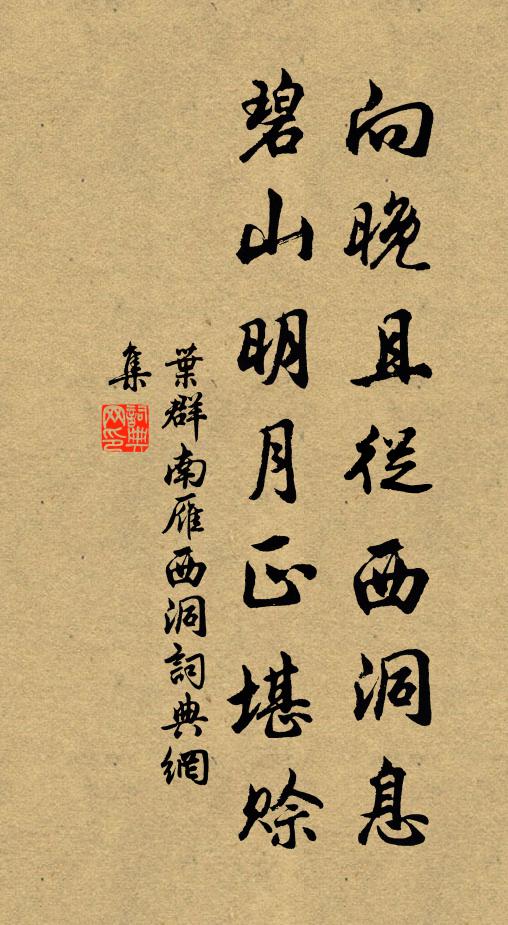 向晚且從西洞息
碧山明月正堪賒
葉群南雁西洞詞典網
集
詞典网印